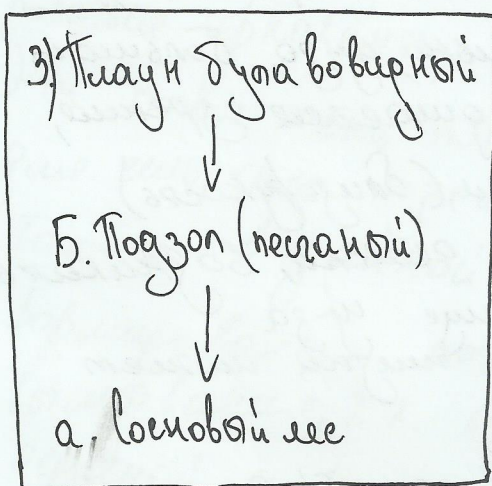 3) Плаун булавовидный
Б. Подзол (песчаный)
а. Сосновый лес